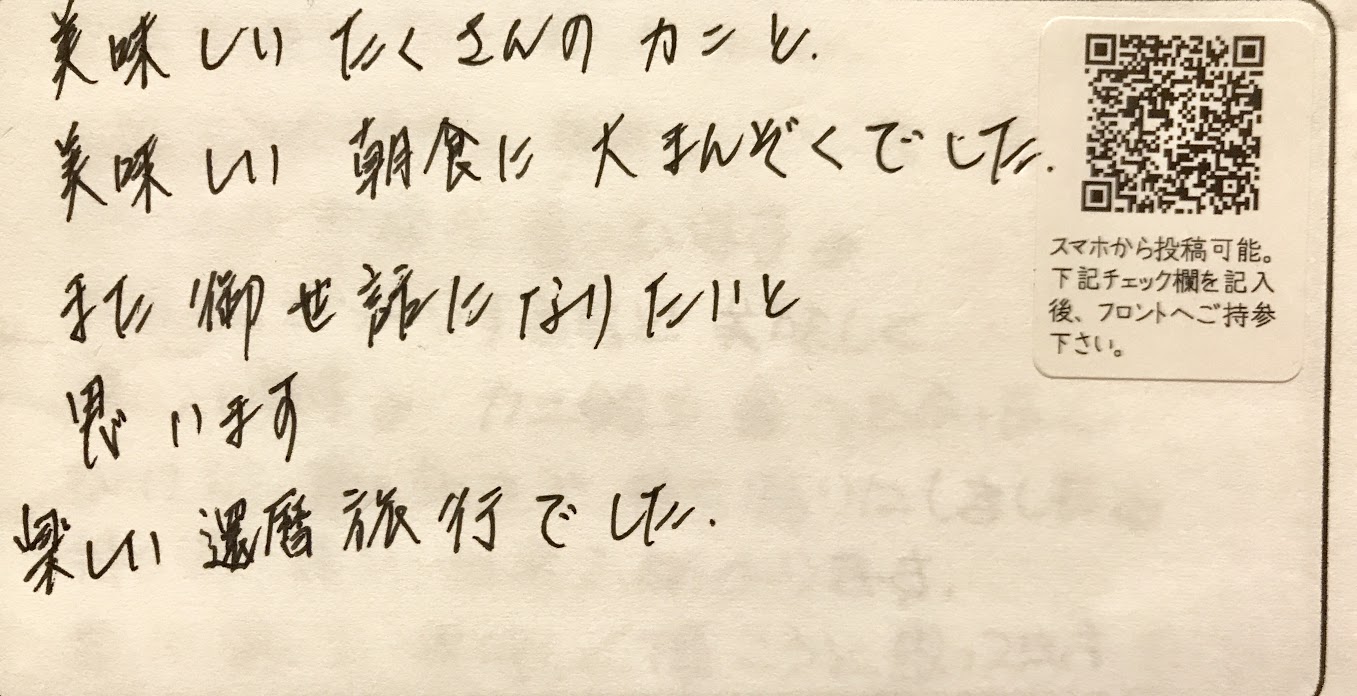 美味しいたくさんのカニと.
美味しい朝食に大まんぞくでした.
また御世話になりたいと
思います
楽しい還暦旅行でした.
スマホから投稿可能。
下記チェック欄を記入
後、フロントへご持参
下さい。